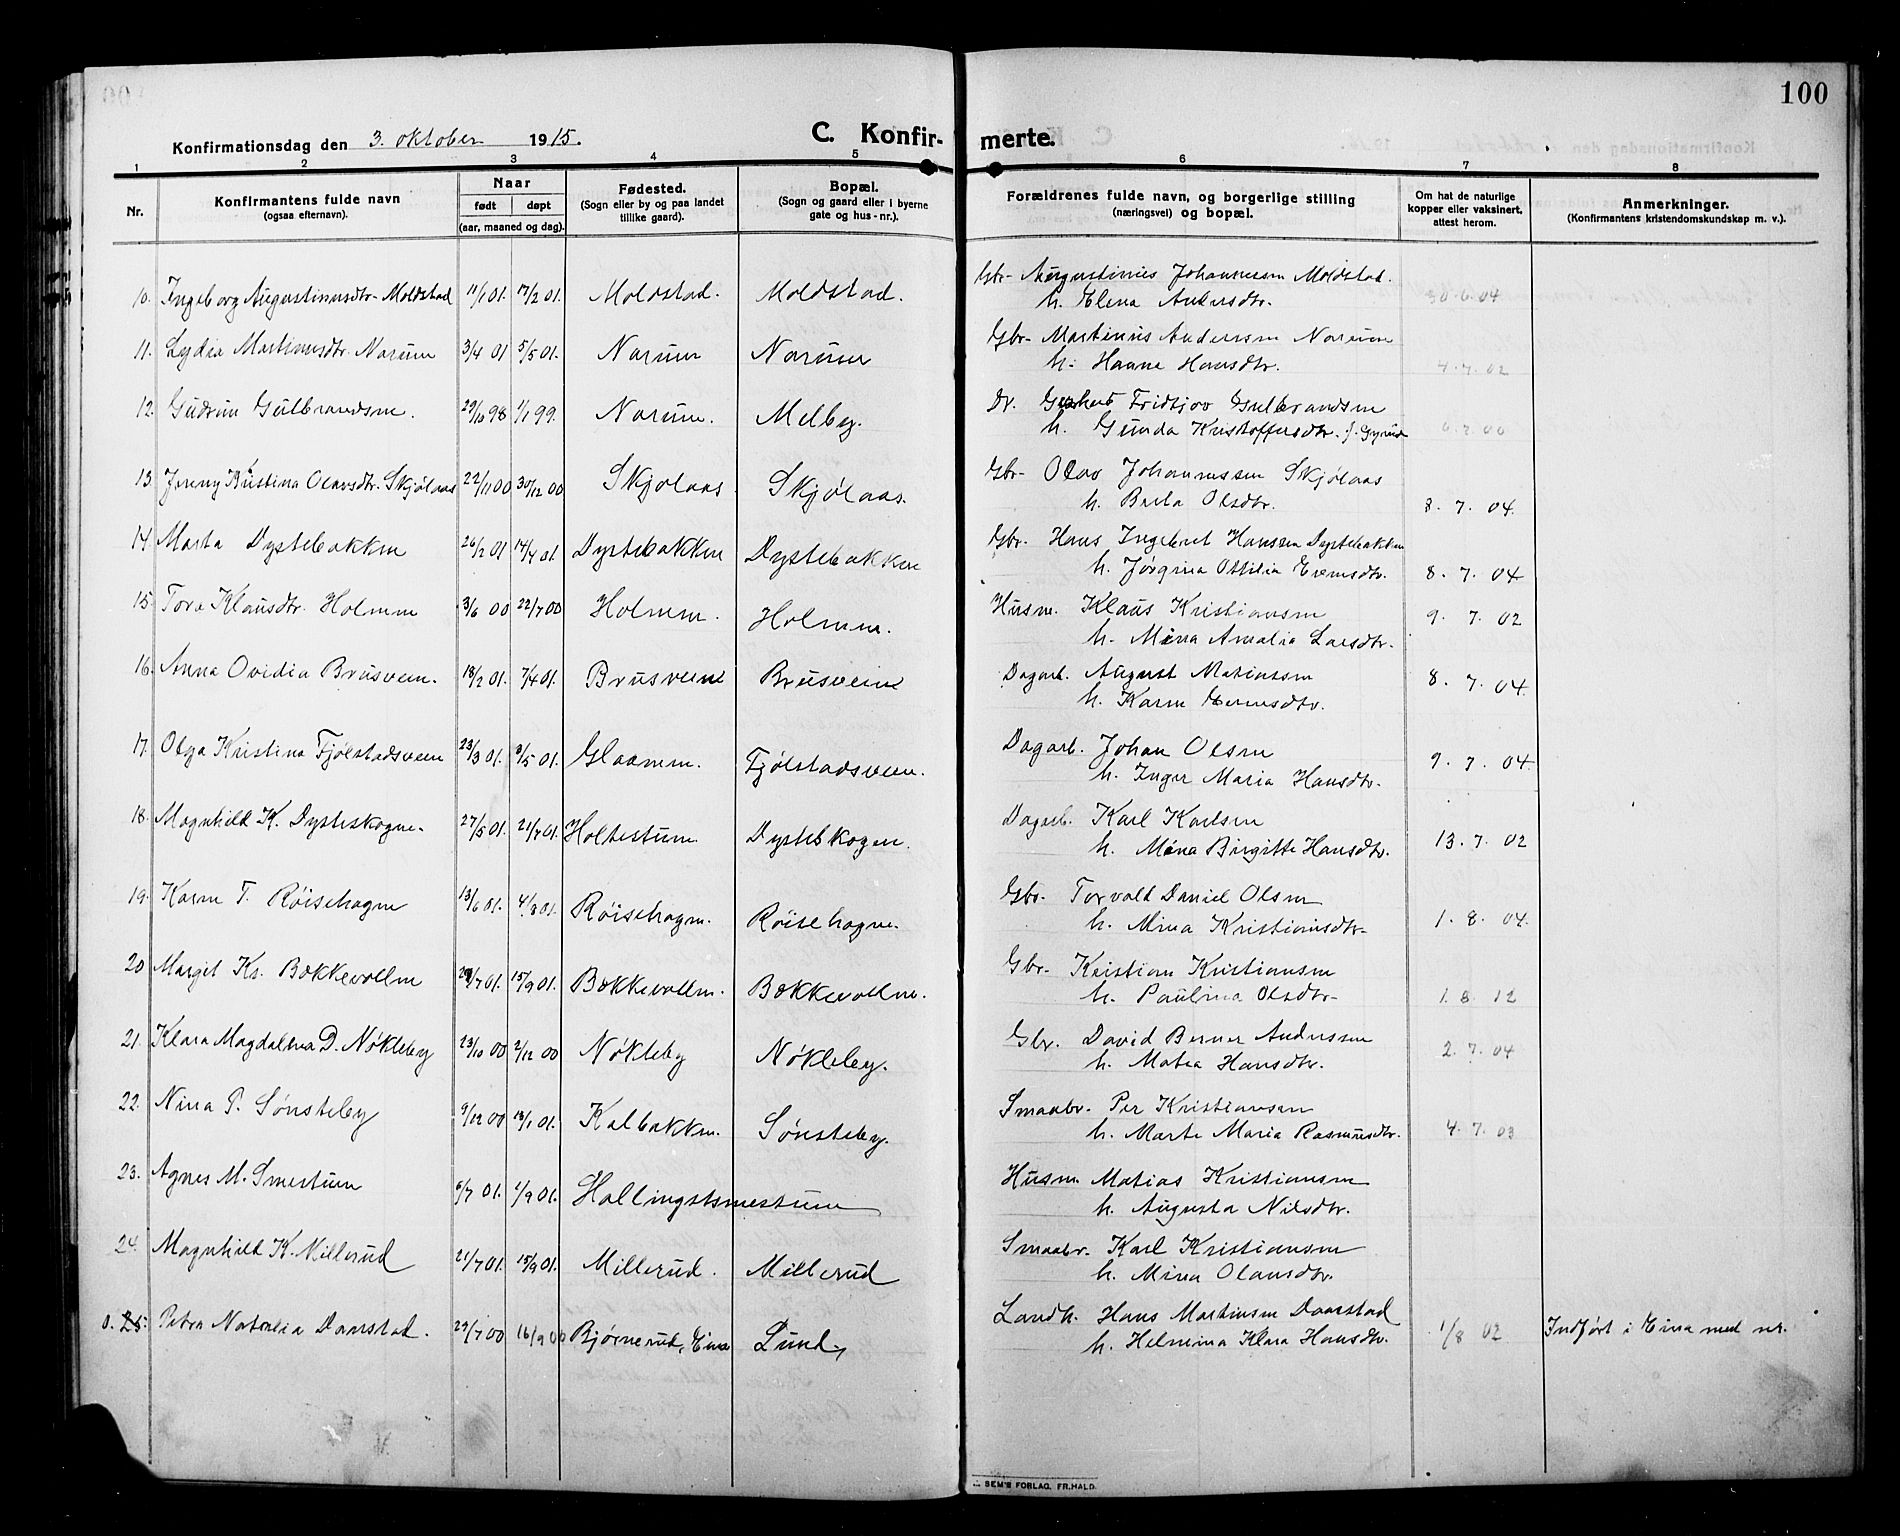 100
Konfirmationsdag den 3. oktober 1915.
C. Konfirmerte.
1 2 3 4 5 6 7 8
Nr. | Konfirmantens fulde navn (ogsaa efternavn). | Naar født døpt (aar, maaned og dag). | Fødested. (Sogn eller by og paa landet tillike gaard). | Bopæl. (Sogn og gaard eller i byerne gate og hus-nr.). | Forældrenes fulde navn, og borgerlige stilling (næringsvei) og bopæl. | Om hat de naturlige kopper eller vaksinert, attest herom. | Anmerkninger. (Konfirmantens kristendomskundskap m. v.).
10. Ingeborg Augustinusdtr. Moldstad 11/1 01. 17/2 01. Moldstad. Moldstad. Gbr. Augustinus Johannessen Moldstad.
h. Elena Andersdtr. 30.6.04
11. Lydia Martinusdtr. Narum 3/4 01 5/5 01. Narum Narum Gbr. Martinius Anderssen Narum
h. Hanne Hansdtr. 4.7.02
12. Gudrun Gulbrandsen. 29/10 98 1/1 99. Narum. Melby. Fridtjov Gulbrandsen
h. Gunda Kristoffersdtr. f.
13. Jenny Kristina Olavsdtr. Skjølaas 22/11 00 30/12 00 Skjølaas Skjølaas. Gbr. Olav Johannessen Skjølaas
h. Berta Olsdtr. 8.7.04.
14. Marta Dystebakken 26/2 01 14/4 01. Dystebakken Dystebakken Gbr. Hans Ingebret Hanssen Dystebakken
h. Jørgina Ottilia Evensdtr. 8.7.04
15. Tora Klausdtr. Holmen 3/6 00 22/7 00 Holmen. Holmen. Husm. Klaus Kristiansen
h. Mina Amalia Larsdtr. 9.7.02
16. Anna Ovidia Brusveen. 18/2 01. 7/4 01. Brusveen Brusveen Dagarb. August Matiassen
h. Karen Evensdtr. 8.7.04.
17. Olga Kristina Fjølstadsveen 23/3 01. 8/5 01. Glaamen. Fjølstadsveen. Dagarb. Johan Olsen
h. Inger Maria Hansdtr. 9.7.04.
18. Magnhild K. Dysteskogen. 27/5 01. 21/7 01. Holtestuen Dysteskogen. Dagarb. Karl Karlsen
h. Mina Birgitte Hansdtr. 13.7.02
19. Karen T. Røisehagen 13/6 01. 4/8 01. Røisehagen. Røisehagen. Gbr. Torvald Daniel Olsen
h. Mina Kristiansdtr. 1.8.04.
20 Margit Kr. Bækkevollen 7 01. 15/9 01. Bækkevollen. Bækkevollen. Gbr. Kristian Kristiansen
h. Paulina Olsdtr. 1.8.12
21. Klara Magdalena D. Nøkleby 23/10 00 2/12 00 Nøkleby Nøkleby. Gbr. David Berner Anderssen
h. Matea Hansdtr. 2.7.04
22. Nina P. Sønsteby 9/12 00 13/1 01. Kalbakken. Sønsteby. Smaabr. Per Kristiansen
h. Marte Maria Rasmusdtr. 4.7.03
23. Agnes M. Smestuen 6/7 01. 1/9 01. Hallingstsmestuen Husm. Matias Kristiansen
h. Augusta Nilsdtr.
24. Magnhild K. Millerud 21/7 01. 15/9 01. Millerud. Millerud Smaabr. Karl Kristiansen
h. Mina Olausdtr.
0. 25. Petra Natalia Daanstad. 29/7 00 16/9 00 Bjørnerud, Eina Lund, Landh. Hans Martinsen Daanstad
h. Helmina Klara Hansdtr. 1/8 02 Indført i Eina med nr.
SEM'S FORLAG, FR.HALD.